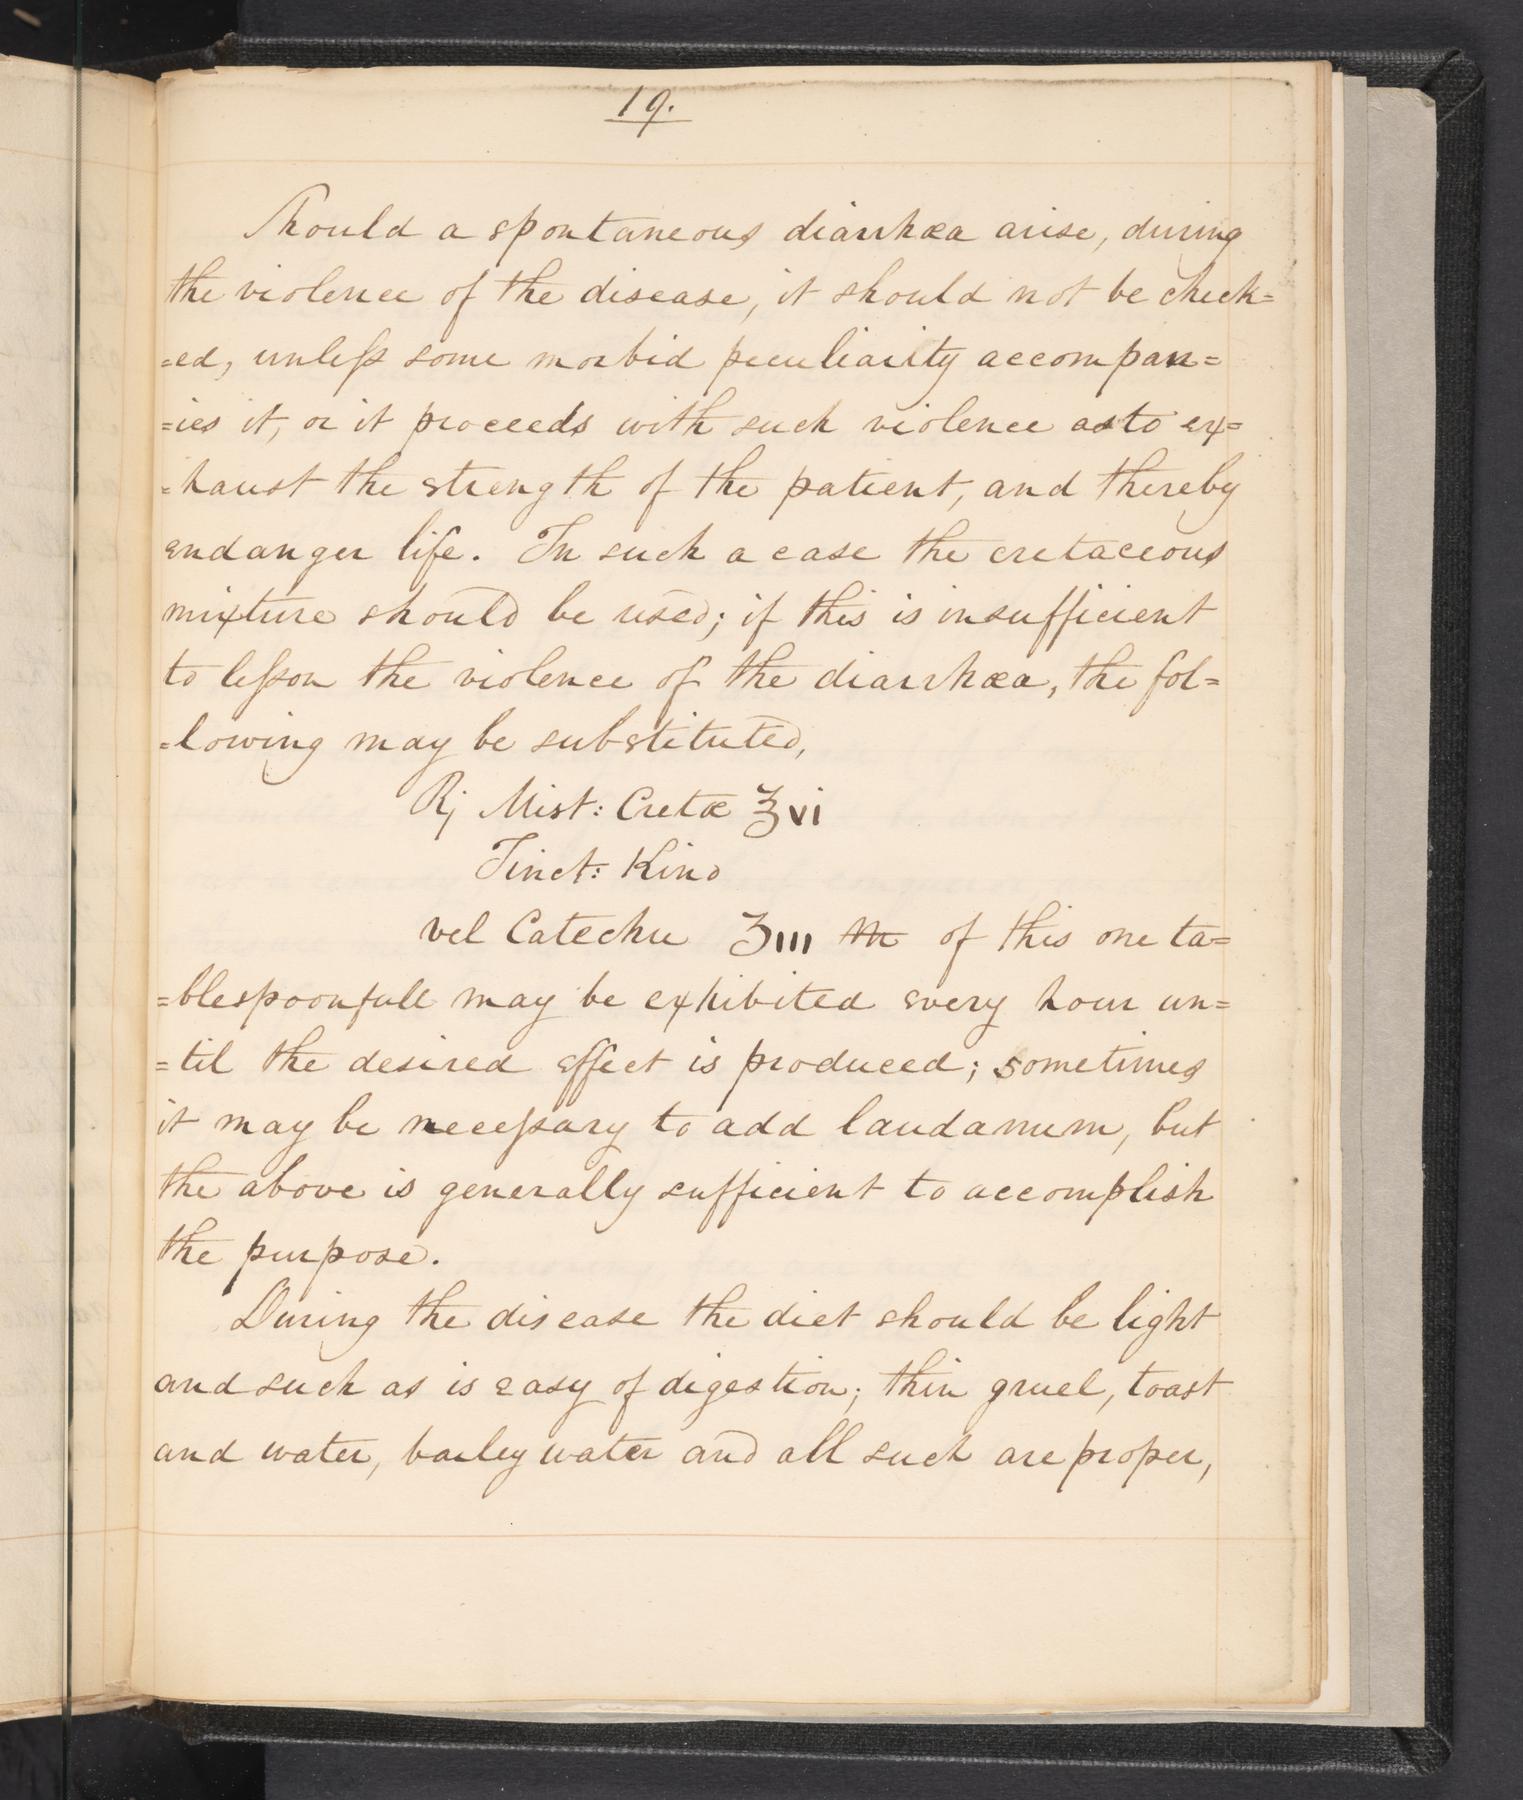 19.
Should a spontaneous diarrhœa arise, during
the violence of the disease, it should not be check=
=ed, unleſs some morbid peculiarity accompan=
=ies it, or it proceeds with such violence as to ex=
=haust the strength of the patient, and thereby
endanger life. In such a case the cretaceous
mixture should be used; if this is insufficient
to leſson the violence of the diarrhœa, the fol=
=lowing may be substituted,
℞ Mist: Cretæ ℥vi
Tinct: Kino
vel Catechu ʒiii M of this one ta=
=blespoonfull may be exhibited every hour un=
=til the desired effect is produced; sometimes
it may be neceſsary to add laudanum, but
the above is generally sufficient to accomplish
the purpose.
During the disease the diet should be light
and such as is easy of digestion; thin gruel, toast
and water, barley water and all such are proper,